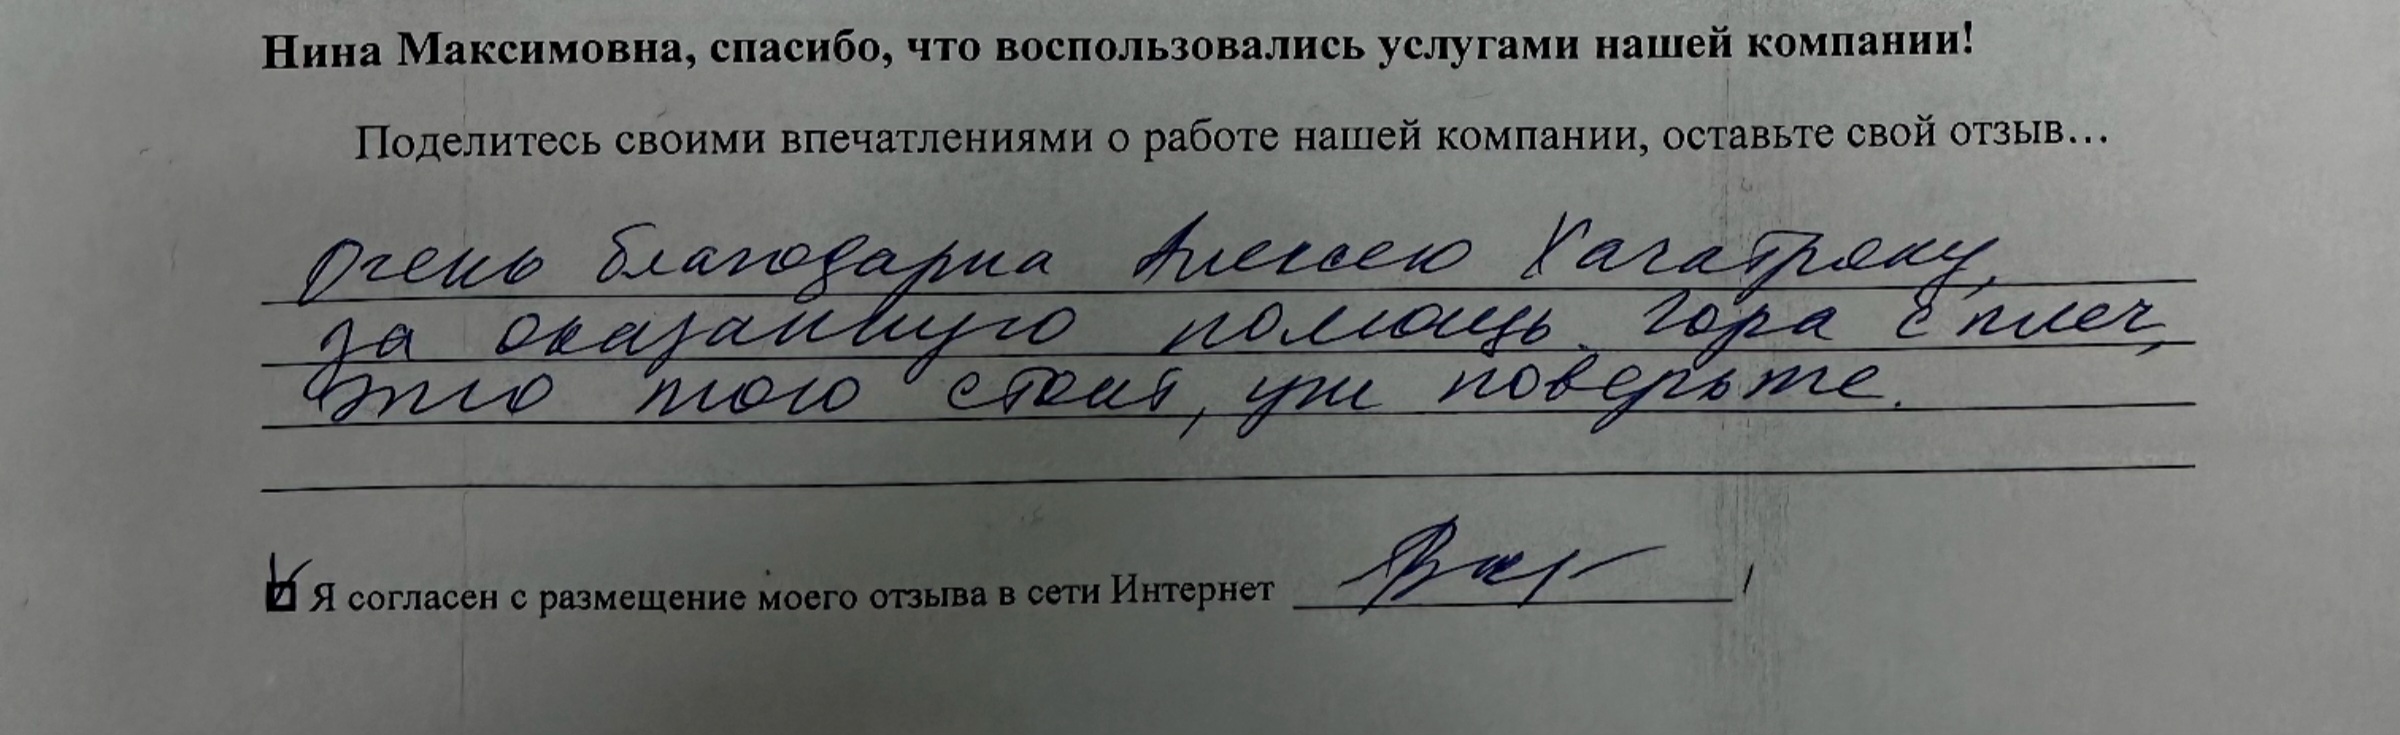 Нина Максимовна, спасибо, что воспользовались услугами нашей компании!
Поделитесь своими впечатлениями о работе нашей компании, оставьте свой отзыв...
Очень благодарна Алексею Хачатряну,
за оказанную помощь. Гора с плеч,
это того стоит, уж поверьте.
Я согласен с размещение моего отзыва в сети Интернет